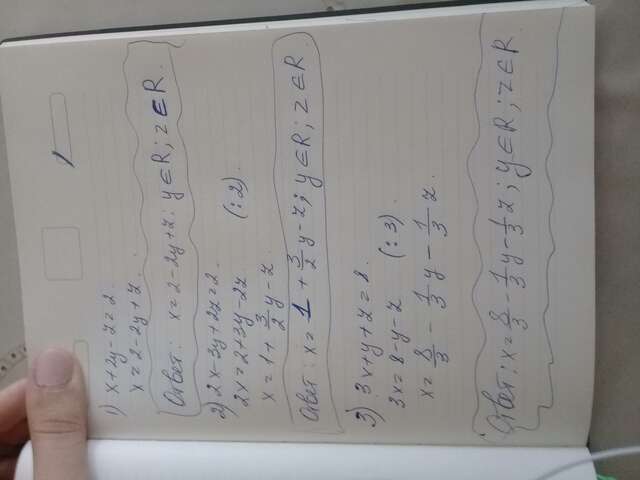 1) x+2y-z=2
x=2-2y+z.
Ответ: x=2-2y+z; y∈R; z∈R.
2) 2x-3y+2z=2.
2x=2+3y-2z (:2).
x=1+3/2y-z
Ответ: x=1+3/2y-z; y∈R; z∈R.
3) 3x+y+z=8.
3x=8-y-z (:3).
x=8/3-1/3y-1/3z.
Ответ: x=8/3-1/3y-1/3z; y∈R; z∈R